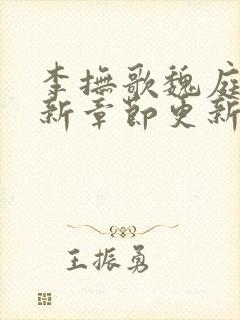 李撫歌魏庭
新章節更新
王振勇